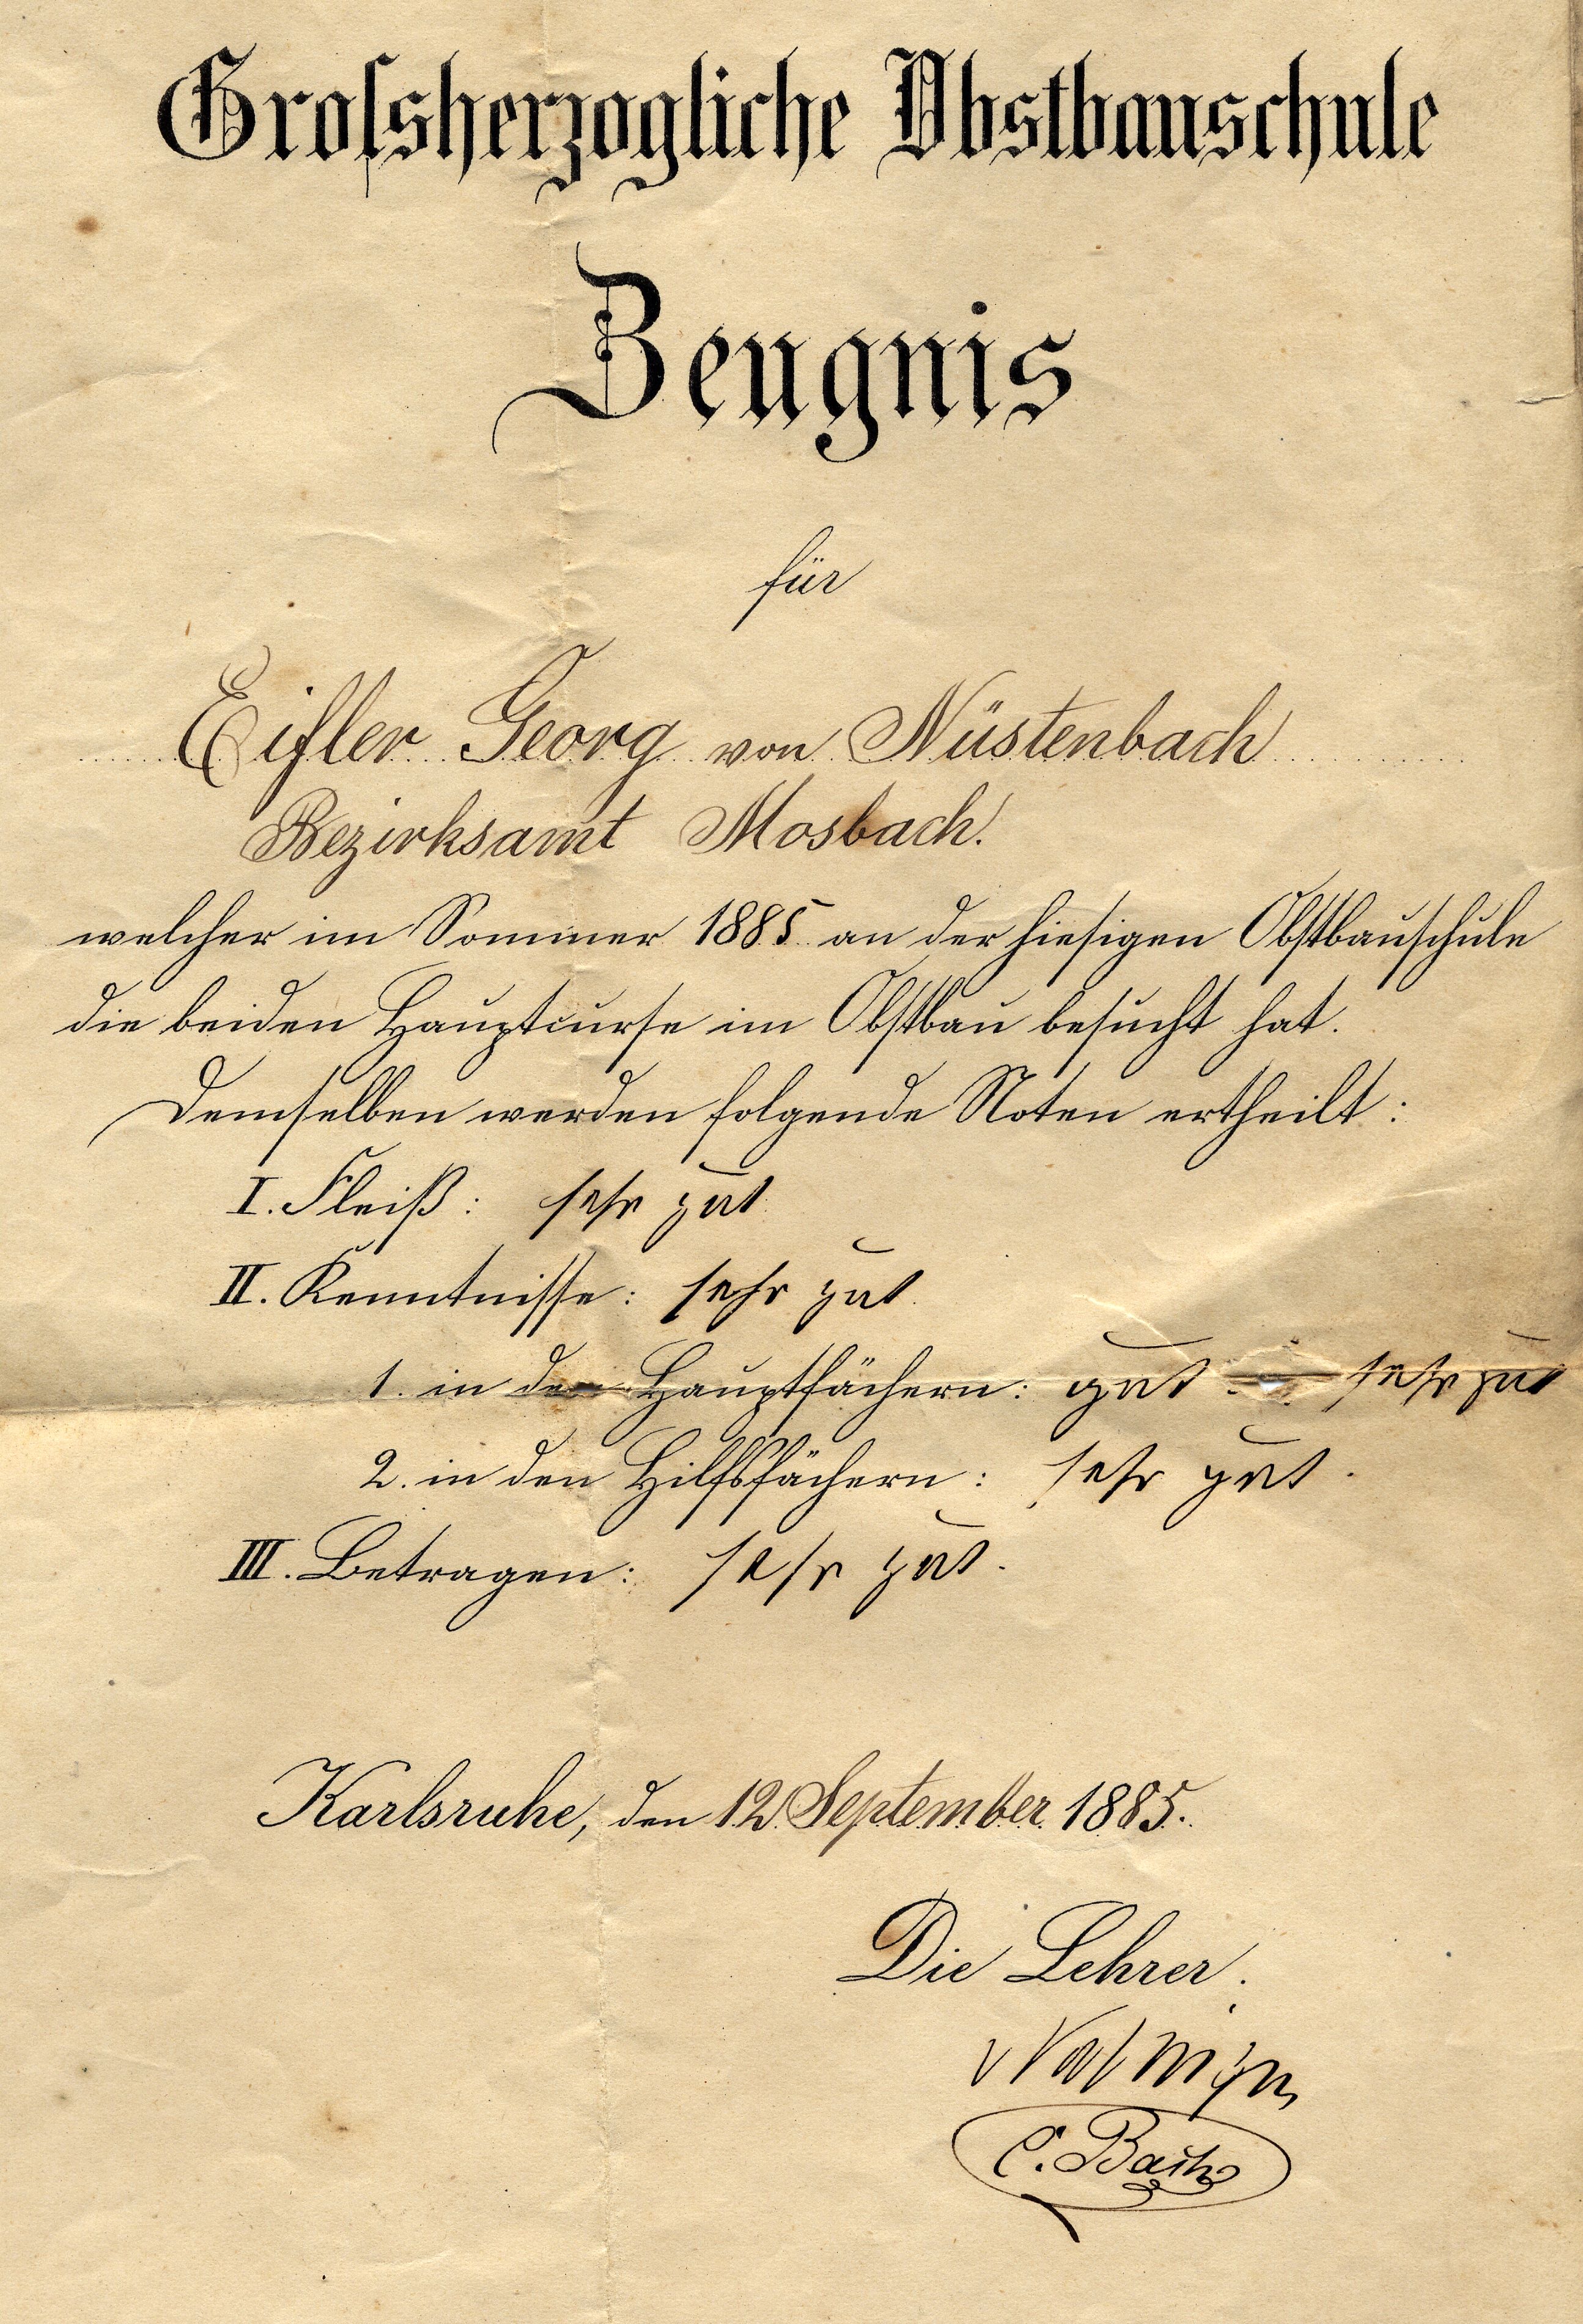 Grossherzogliche Obstbauschule
Zeugnis
für
Eifler Georg von Nüstenbach
Bezirksamt Mosbach.
welcher im Sommer 1885 an der hiesigen Obstbauschule
die beiden Hauptcurse im Obstbau besucht hat.
Demselben werden folgende Noten ertheilt:
I. Fleiß: sehr gut
II. Kenntnisse: sehr gut.
1. in den Hauptfächern: gut – sehr gut
2. in den Hilfsfächern: sehr gut.
III. Betragen: sehr gut.
Karlsruhe, den 12 September 1885.
Die Lehrer.
C. Bach